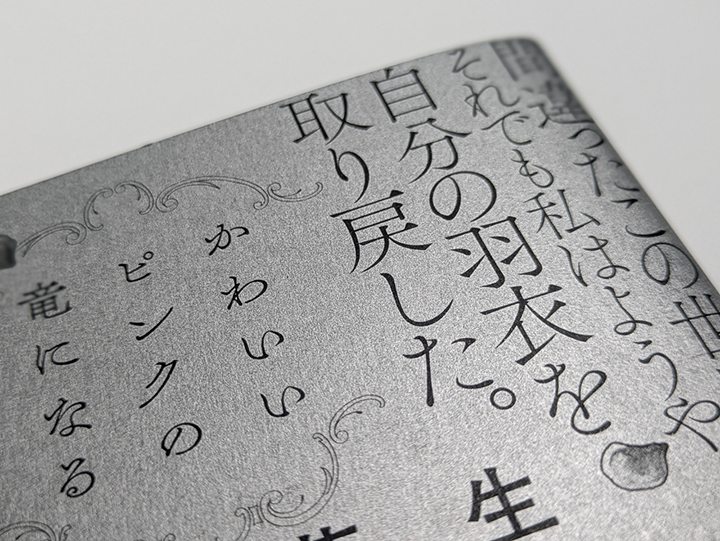 間違ったこの世
それでも私はようや
自分の羽衣を
取り戻した。
かわいい
ピンクの
竜になる
生